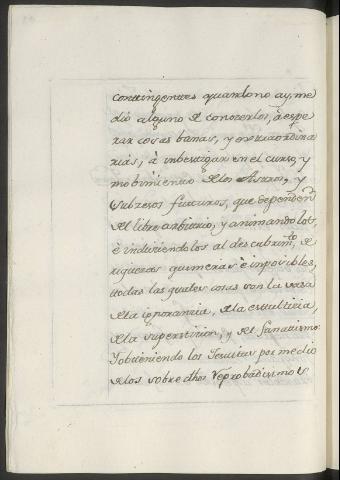 contingentes quando no ay, me
dio alguno de conocerlos, à espe
rar cosas banas, y extraordina
rias, à inbestigar en el curso, y
mobimiento de los Astros, y
subcesos futuros, que dependen
del libre arbitrio, y animandolos,
è induciendolos al descubrim.to de
riquezas quimeras è inposibles,
todas las quales cosas son la vasa
de la ignorancia, de la estulticia,
de la supersticion, y del fanatismo.
Y obteniendo los Jesuitas por medio
de los sobredhos reprobadisimos